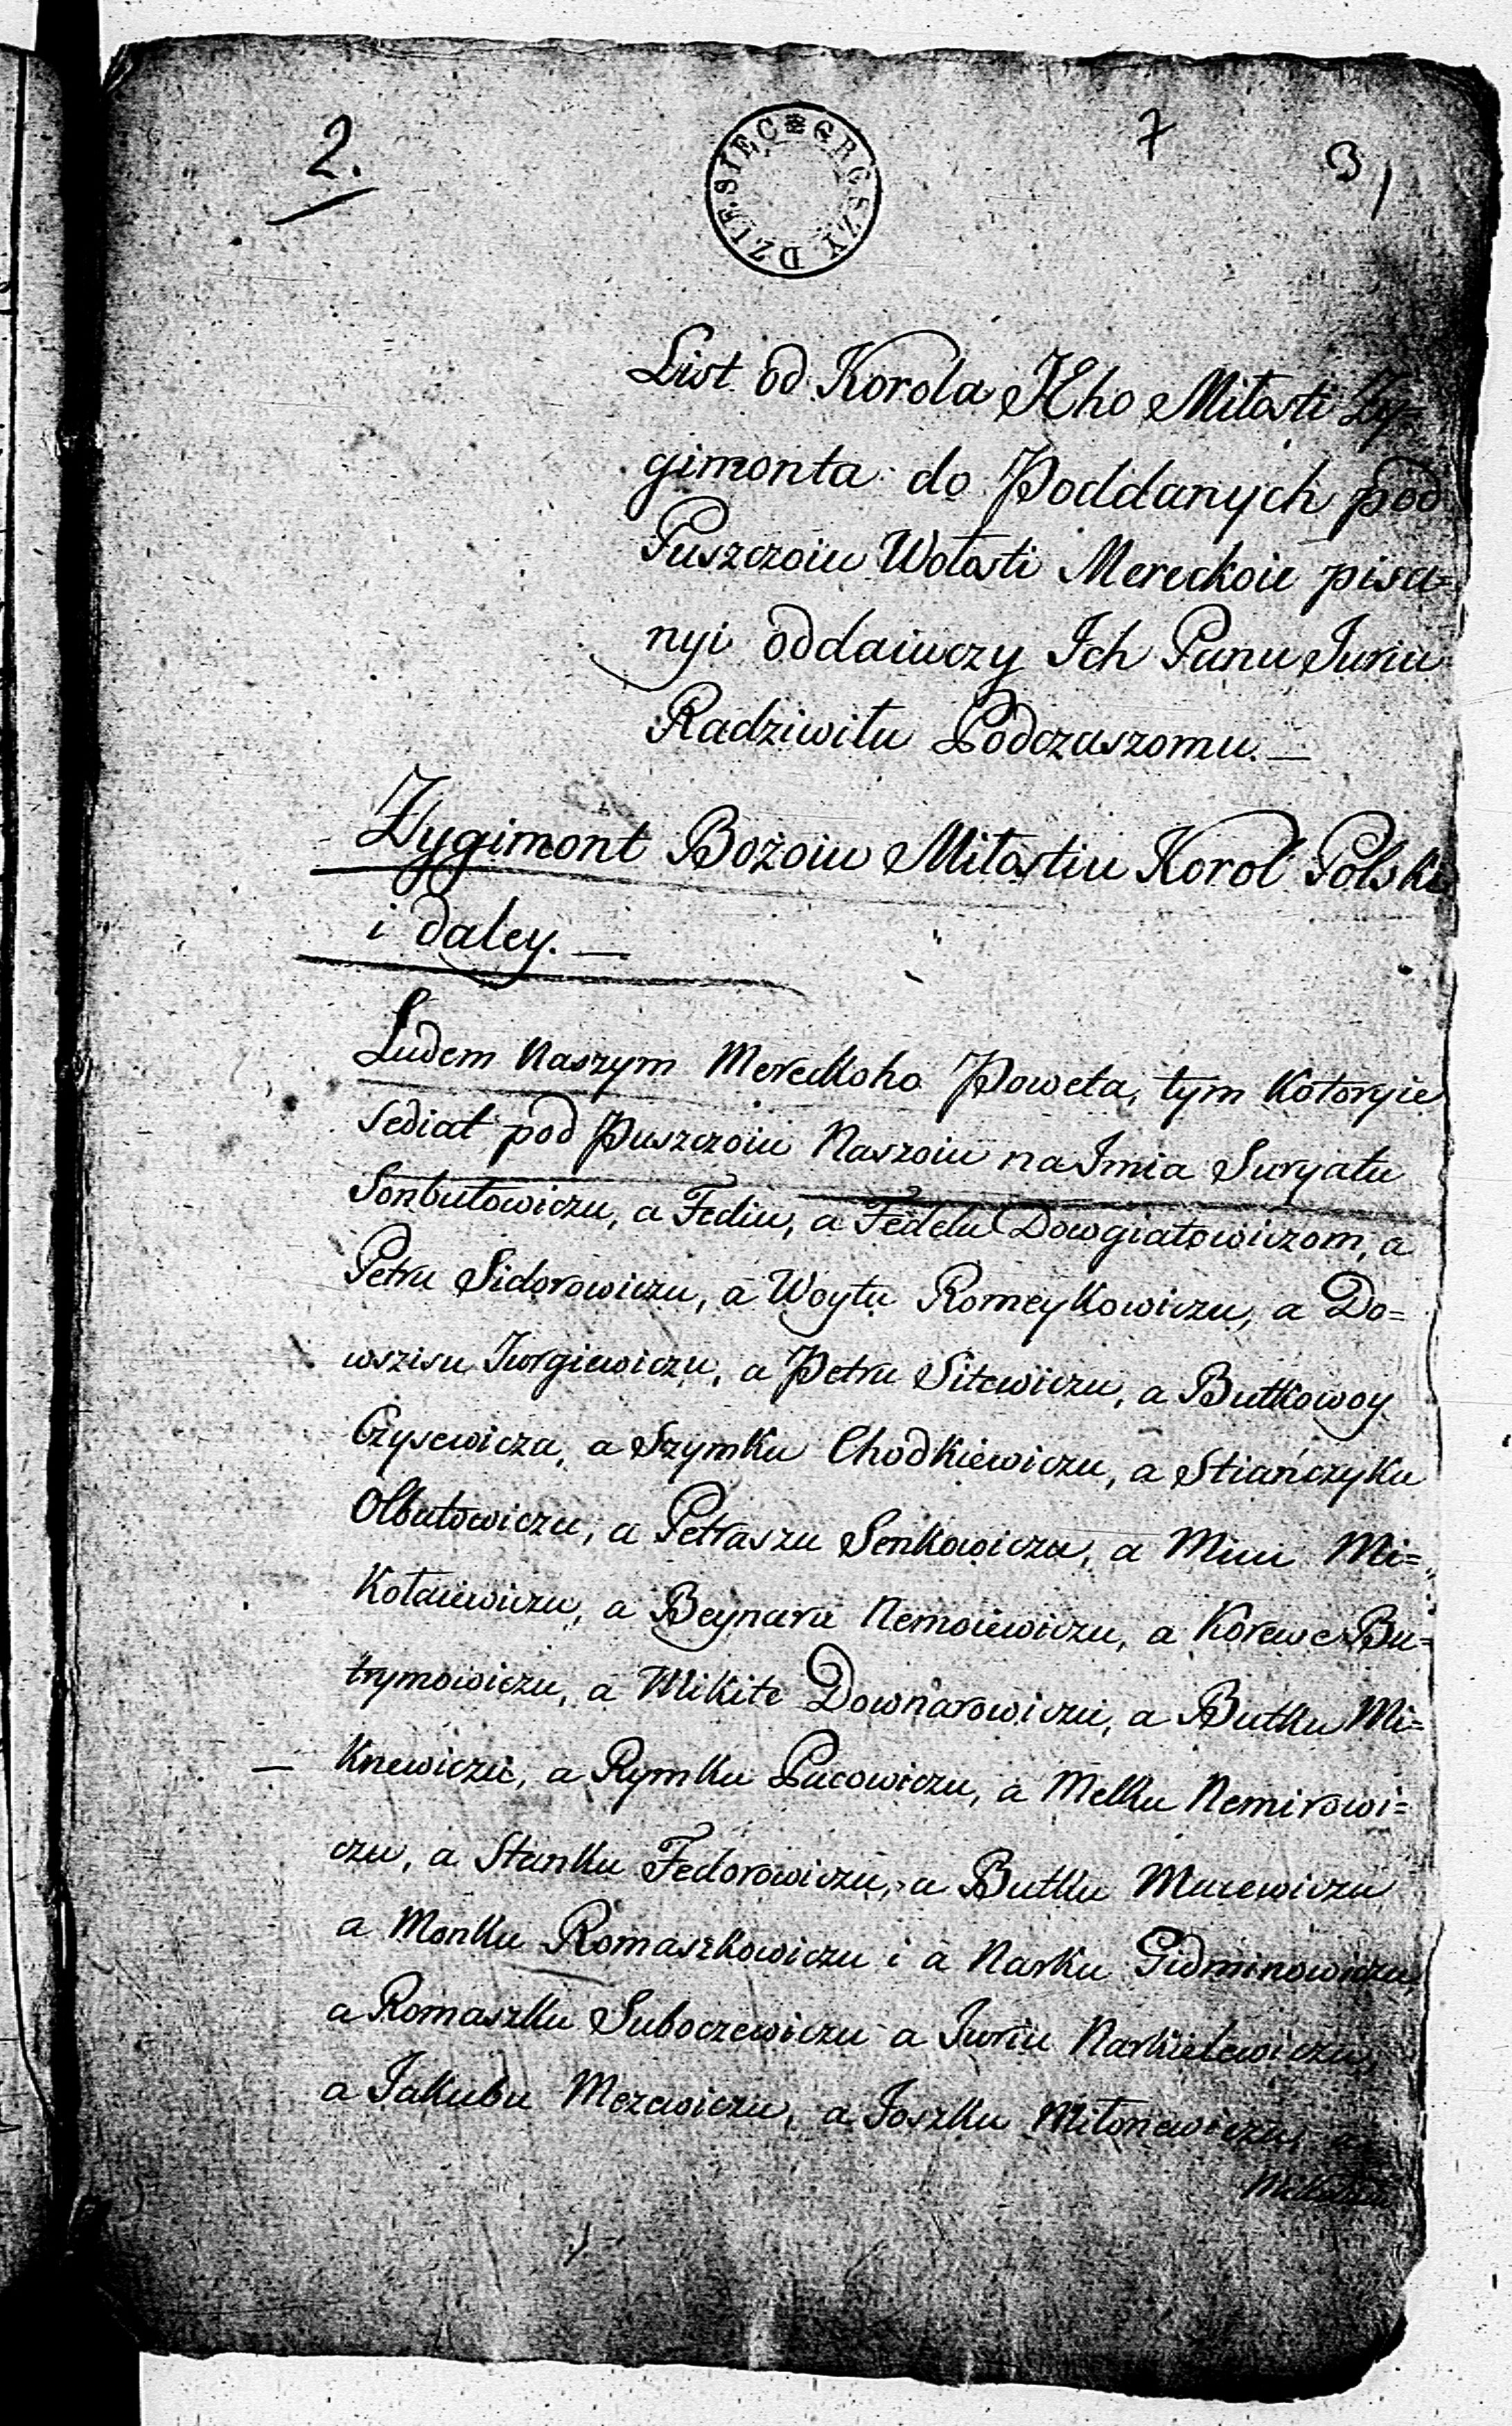 2.
7
3
DZIESIĘC GROSZY
List od Korola Jeho Miłosti Zy=
gimonta do Poddanych pod
Puszczoiu Wołosti Mereckoie pisa=
nyi oddaiuczy Ich Panu Juriu
Radziwiłu Podczaszomu. —
Zygimont Bożoiu Miłostiu Korol Polski
i daley. —
Ludem Naszym Mereckoho Poweta, tym Kotoryie
sediat pod Puszczoiu Naszoiu na Imia Suryatu
Sonbutowiczu, a Fediu, a Fedelu Dowgiałowiczom, a
Petru Sidorowiczu, a Woytu Romeykowiczu, a Do=
wszisu Jurgiewiczu, a Petru Sitewiczu, a Butkowoy
Czysewicza, a Szymku Chodkiewiczu, a Stiańczyku
Olbutowiczu, a Petraszu Senkowiczu, a Miu Mi=
kołaiewiczu, a Beynaru Nemoiewiczu, a Korewe Bu=
trymowiczu, a Mikite Downarowiczu, a Butku Mi=
knewiczu, a Rymku Pacowiczu, a Melku Nemirowi=
czu, a Stanku Fedorowiczu, a Butku Mucewiczu
a Monku Romaszkowiczu i a Narku Gidminowiczu,
a Romaszku Suboczewiczu a Juriu Narkielewiczu,
a Jakubu Mezewiczu, a Joszku Miłonewiczu, a